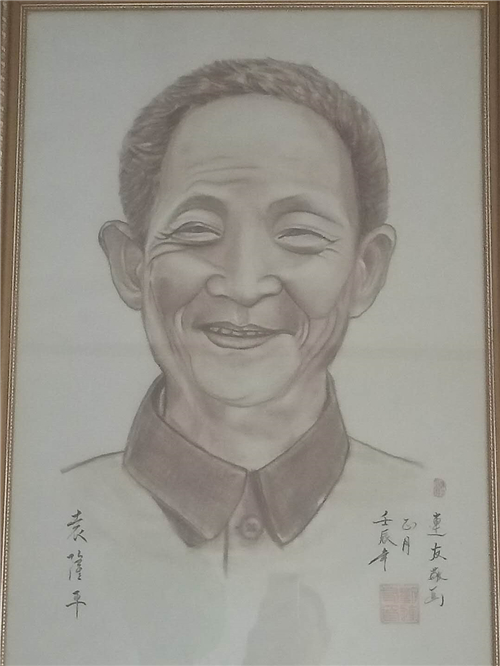 袁隆平
壬辰年
正月
連友敬画